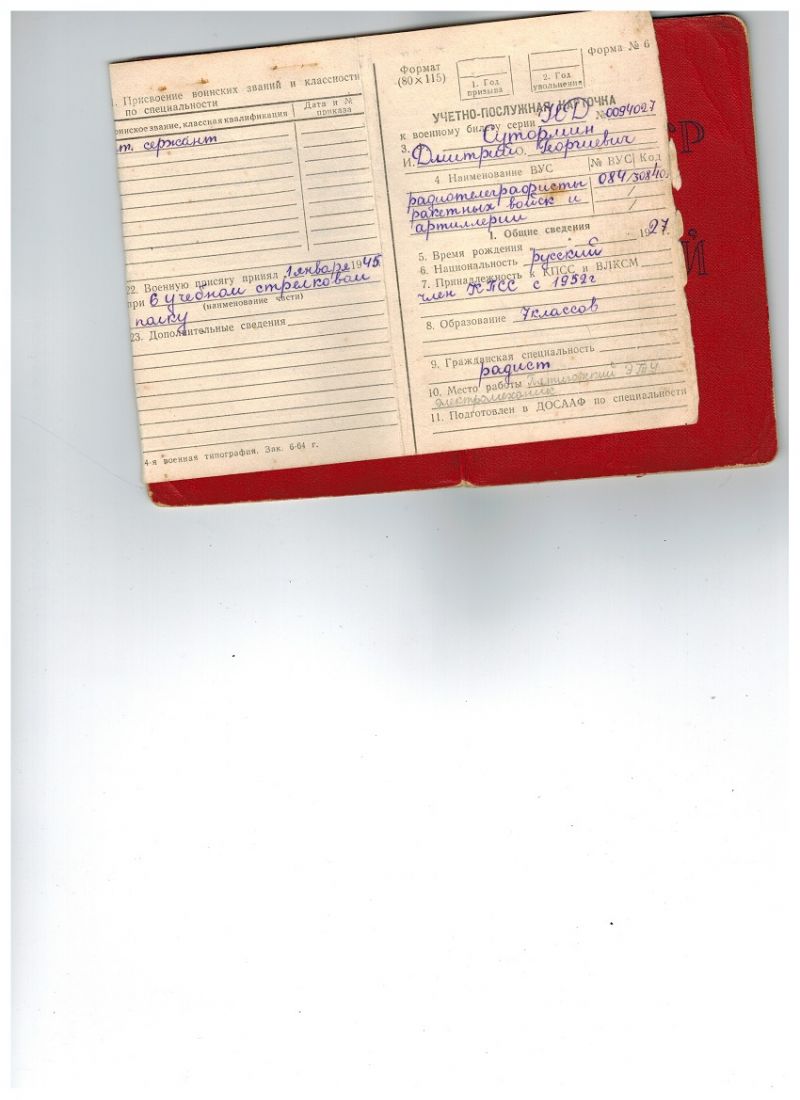 . Присвоение воинских званий и классности
по специальности
оинское звание, классная квалификация
Дата и №
приказа
т. сержант
22. Военную присягу принял 1 января 1945
при в учебном стрелковом
(наименование части)
полку
23. Дополнительные сведения
4-я военная типография. Зак. 6-64 г.
Формат
(80×115)
1. Год
призыва
2. Год
увольнения
Форма № 6
УЧЕТНО-ПОСЛУЖНАЯ КАРТОЧКА
к военному билету серии НО № 0094027
3. Сутормин
И. Дмитрий О. Георгиевич
4 Наименование ВУС
№ ВУС
Код
радиотелеграфисты
ракетных войск и
артиллерии
084
1. Общие сведения
5. Время рождения 1927
6. Национальность русский
7. Принадлежность к КПСС и ВЛКСМ
член КПСС с 1952г
8. Образование 7 классов
9. Гражданская специальность
радист
10. Место работы
электромеханик
11. Подготовлен в ДОСААФ по специальности
Р
Й